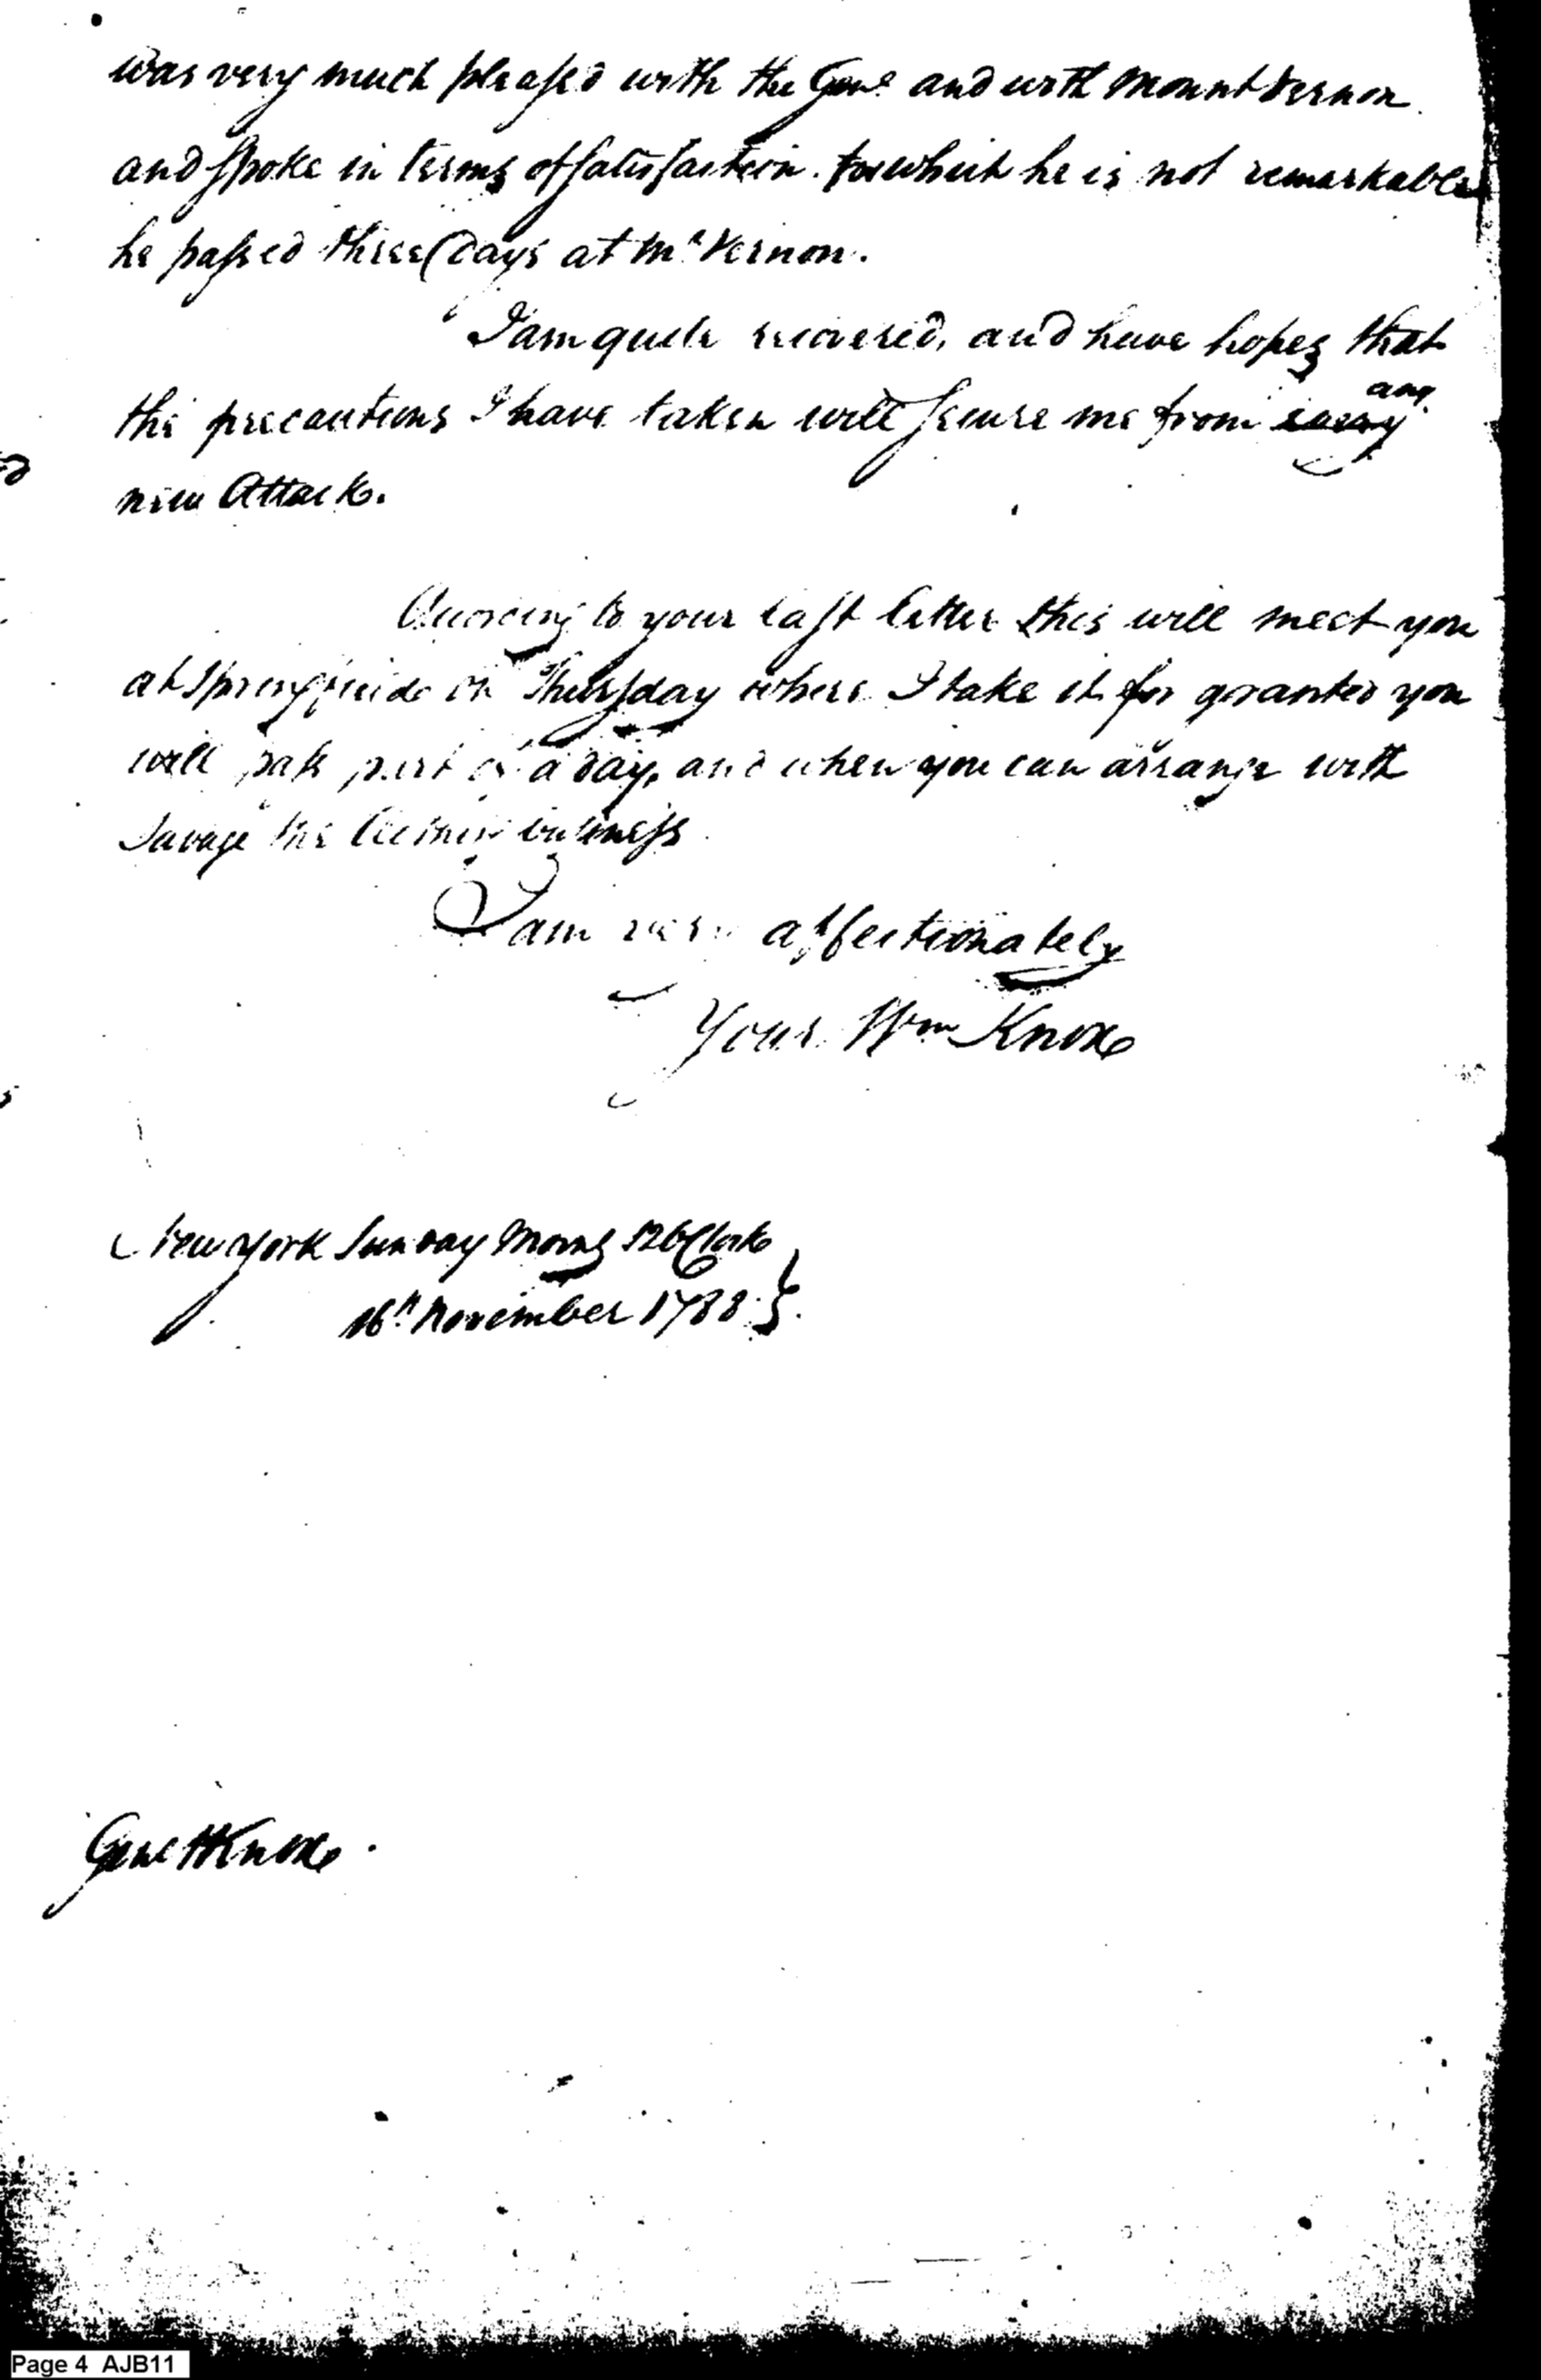 was very much pleased with the Genl and with Mount Vernon
and spoke in terms of satisfaction. for which he is not remarkable
he passed three Days at Mt Vernon.
I am quite recovered, and have hopes that
the precautions I have taken will secure me from every any
new Attack.
According to your last letter this will meet you
at Springfield on Thursday where I take it for granted you
will pass part of a day, and when you can arrange with
Savage the business
I am very affectionately
Your Wm Knox
New York Sunday Morng 12 oClock
16th November 1788
Genl H Knox
Page 4 AJB11